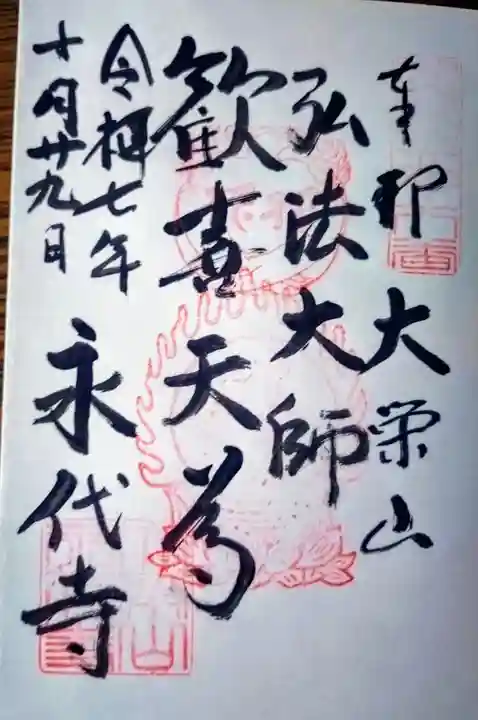 奉拝 大栄山
弘法大師
歓喜天尊
令和七年
十月廿九日
永代寺